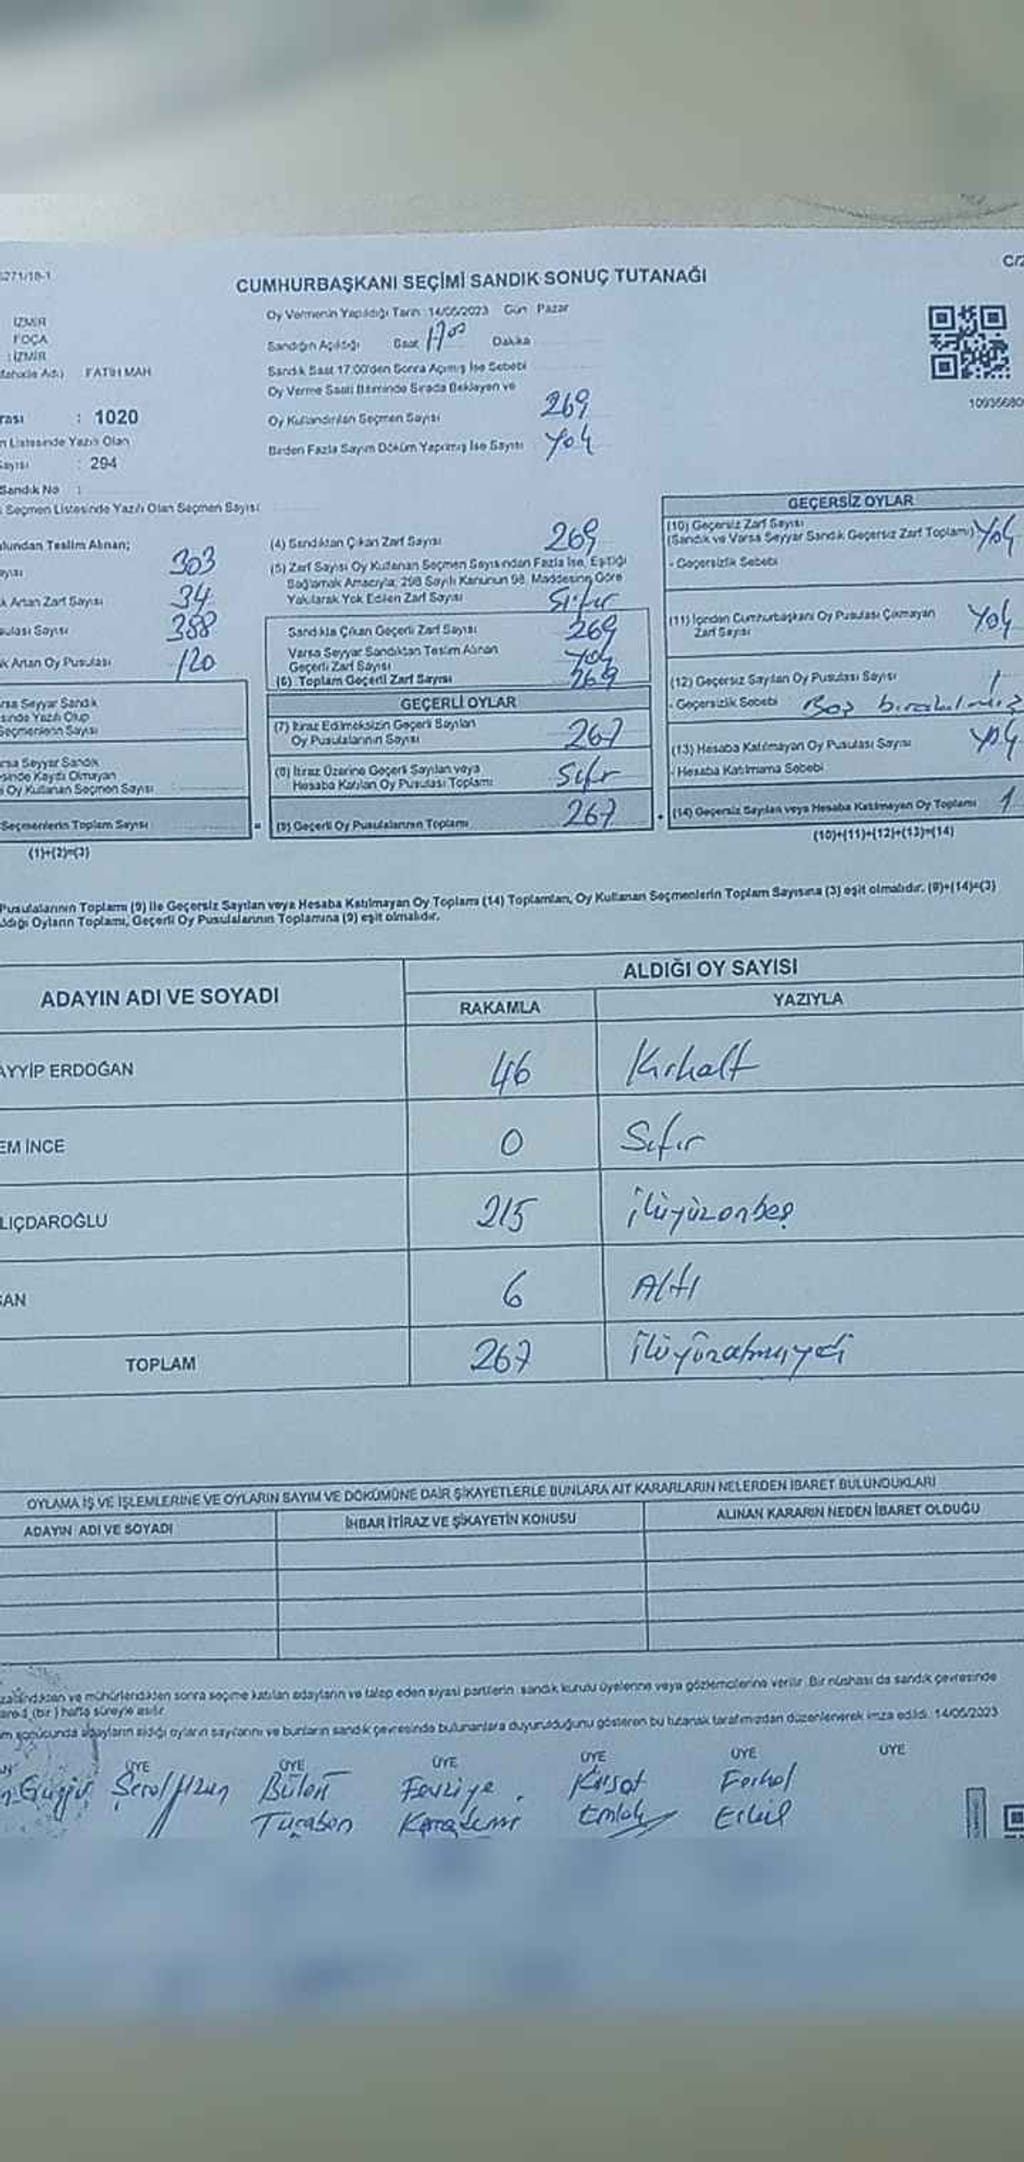 271/18-1
CUMHURBAŞKANI SEÇİMİ SANDIK SONUÇ TUTANAĞI
C/2
İZMİR
FOÇA
: İZMİR
FATİH MAH
: 1020
n Listesinde Yazılı Olan
: 294
Sandık No :
Seçmen Listesinde Yazılı Olan Seçmen Sayısı
Oy Vermenin Yapıldığı Tarih 14/05/2023 Gün Pazar
Sandığın Açıldığı Saat 17:00 Dakika
Sandık Saat 17:00'den Sonra Açılmış İse Sebebi
Oy Verme Saati Bitiminde Sırada Bekleyen ve
Oy Kullandırılan Seçmen Sayısı 269
Birden Fazla Sayım Döküm Yapılmış İse Sayısı Yok
10935680
Teslim Alınan;
303
Artan Zarf Sayısı 34
pulası Sayısı 388
Artan Oy Pusulası 120
rsa Seyyar Sandık
sinde Yazılı Olup
Seçmenlerin Sayısı
rsa Seyyar Sandık
sinde Kayıtlı Olmayan
Oy Kullanan Seçmen Sayısı
Seçmenlerin Toplam Sayısı
(1)+(2)=(3)
(4) Sandıktan Çıkan Zarf Sayısı 269
(5) Zarf Sayısı Oy Kullanan Seçmen Sayısından Fazla İse, Eşitliği
Sağlamak Amacıyla, 298 Sayılı Kanunun 98. Maddesine Göre
Yakılarak Yok Edilen Zarf Sayısı Sıfır
Sandıkla Çıkan Geçerli Zarf Sayısı 269
Varsa Seyyar Sandıktan Teslim Alınan
Geçerli Zarf Sayısı Yok
(6) Toplam Geçerli Zarf Sayısı 269
GEÇERLİ OYLAR
(7) İtiraz Edilmeksizin Geçerli Sayılan
Oy Pusulalarının Sayısı 267
(8) İtiraz Üzerine Geçerli Sayılan veya
Hesaba Katılan Oy Pusulası Toplamı Sıfır
(9) Geçerli Oy Pusulalarının Toplamı 267
GEÇERSİZ OYLAR
(10) Geçersiz Zarf Sayısı
(Sandık ve Varsa Seyyar Sandık Geçersiz Zarf Toplamı) Yok
- Geçersizlik Sebebi
(11) İçinden Cumhurbaşkanı Oy Pusulası Çıkmayan
Zarf Sayısı Yok
(12) Geçersiz Sayılan Oy Pusulası Sayısı 1
- Geçersizlik Sebebi Boş bırakılmış
(13) Hesaba Katılmayan Oy Pusulası Sayısı Yok
- Hesaba Katılmama Sebebi
(14) Geçersiz Sayılan veya Hesaba Katılmayan Oy Toplamı 1
(10)+(11)+(12)+(13)=(14)
Pusulalarının Toplamı (9) ile Geçersiz Sayılan veya Hesaba Katılmayan Oy Toplamı (14) Toplamları, Oy Kullanan Seçmenlerin Toplam Sayısına (3) eşit olmalıdır. (9)+(14)=(3)
ldığı Oyların Toplamı, Geçerli Oy Pusulalarının Toplamına (9) eşit olmalıdır.
ADAYIN ADI VE SOYADI
ALDIĞI OY SAYISI
RAKAMLA YAZIYLA
AYYİP ERDOĞAN 46 Kırkaltı
EM İNCE 0 Sıfır
LIÇDAROĞLU 215 ikiyüzonbeş
ĞAN 6 Altı
TOPLAM 267 ikiyüzatmışyedi
OYLAMA İŞ VE İŞLEMLERİNE VE OYLARIN SAYIM VE DÖKÜMÜNE DAİR ŞİKAYETLERLE BUNLARA AİT KARARLARIN NELERDEN İBARET BULUNDUKLARI
ADAYIN ADI VE SOYADI İHBAR İTİRAZ VE ŞİKAYETİN KONUSU ALINAN KARARIN NEDEN İBARET OLDUĞU
ve mühürlendikten sonra seçime katılan adayların ve talep eden siyasi partilerin sandık kurulu üyelerine veya gözlemcilerine verilir. Bir nüshası da sandık çevresinde
(bir) hafta süreyle asılır.
m sonucunda adayların aldığı oyların sayılarını ve bunların sandık çevresinde bulunanlara duyurulduğunu gösteren bu tutanak tarafımızdan düzenlenerek imza edildi. 14/05/2023
ÜYE ÜYE ÜYE ÜYE ÜYE ÜYE
Bülent Fevziye Kürşat